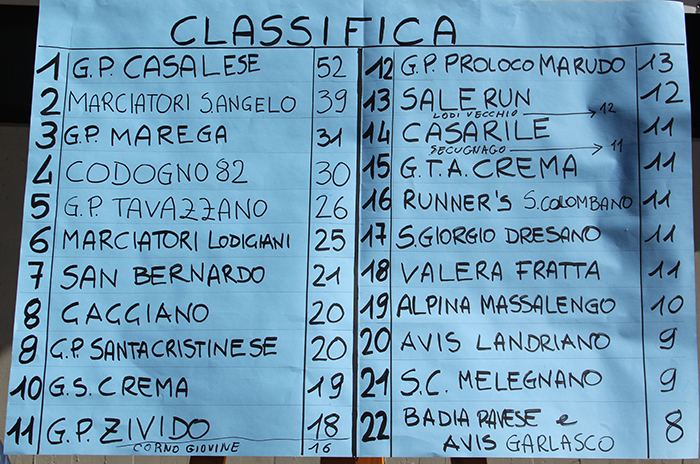 CLASSIFICA
1 G.P. CASALESE 52
2 MARCIATORI S.ANGELO 39
3 G.P. MAREGA 31
4 CODOGNO 82 30
5 G.P. TAVAZZANO 26
6 MARCIATORI LODIGIANI 25
7 SAN BERNARDO 21
8 GAGGIANO 20
9 G.P. SANTACRISTINESE 20
10 G.S. CREMA 19
11 G.P. ZIVIDO 18
CORNO GIOVINE 16
12 G.P. PROLOCO MARUDO 13
13 SALE RUN 12
LODI VECCHIO → 12
14 CASARILE 11
SECUGNAGO → 11
15 G.T.A. CREMA 11
16 RUNNER'S S.COLOMBANO 11
17 S.GIORGIO DRESANO 11
18 VALERA FRATTA 11
19 ALPINA MASSALENGO 10
20 AVIS LANDRIANO 9
21 S.C. MELEGNANO 9
22 BADIA PAVESE e 8
AVIS GARLASCO